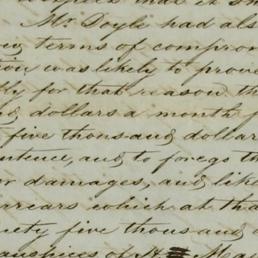 that it sh
Mr Doyle had als
terms of comprom
tion was likely to prove
ly for that reason th
dollars a month
five thousand dollar
sentence, and to forego th
or damages, and lik
rrears which at tha
ety five thousand
auspices of H Ma